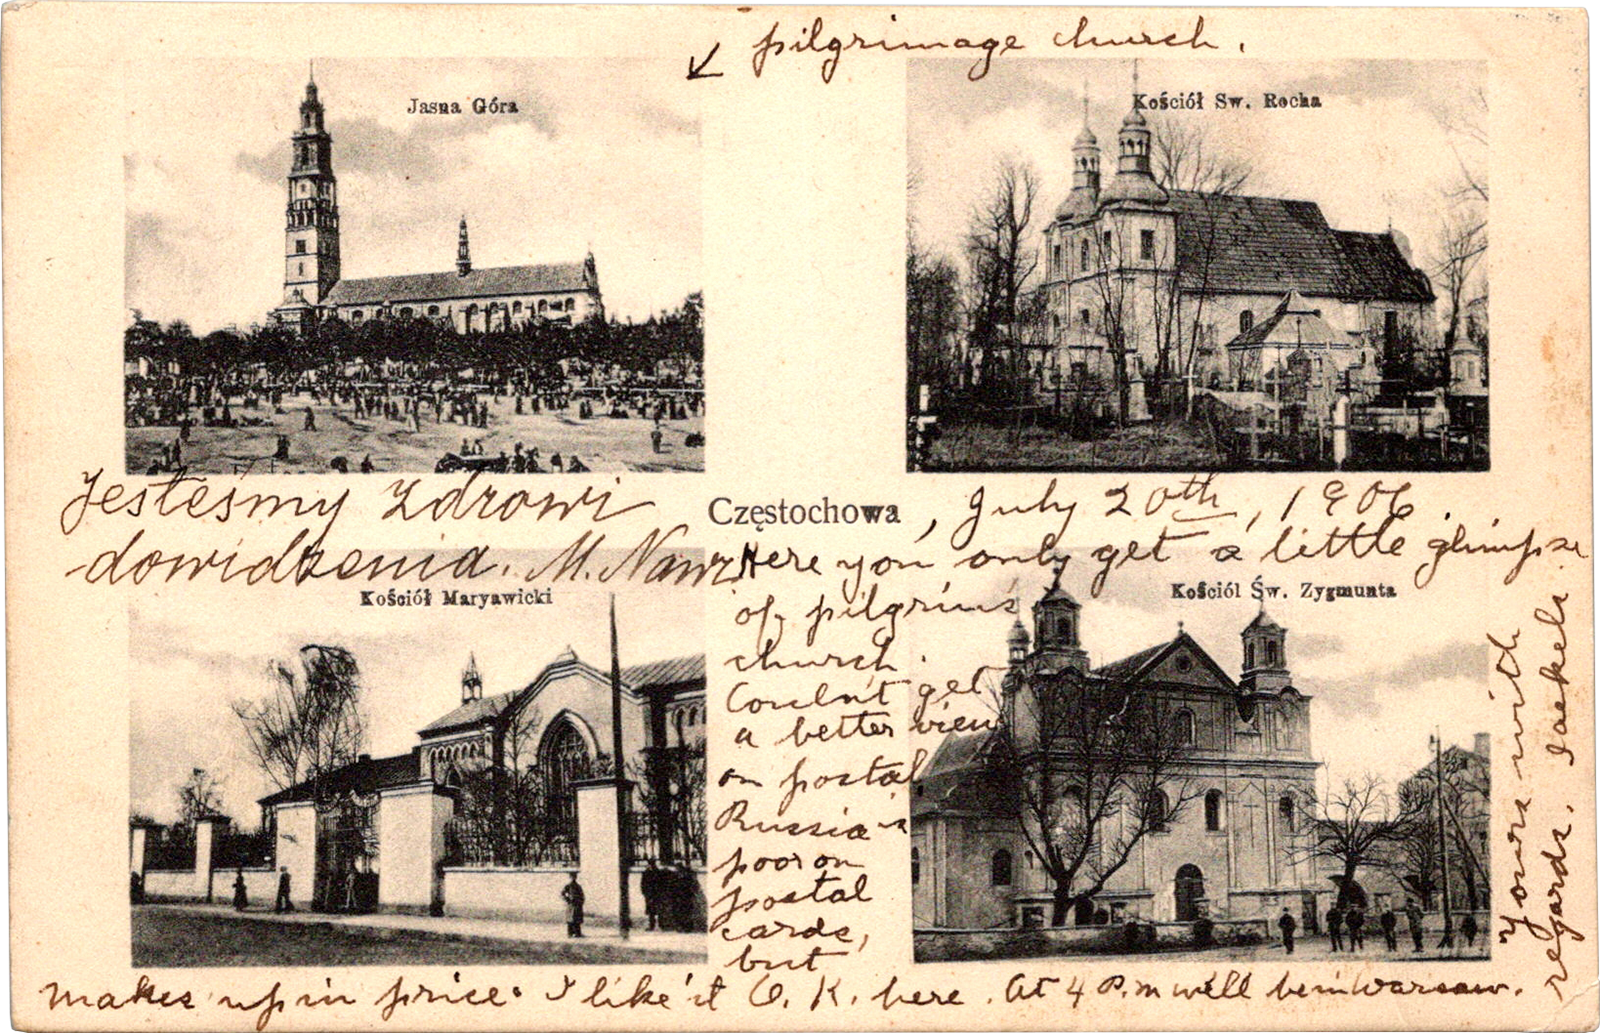 pilgrimage church.
Jasna Góra
Kościół Sw. Rocha
Jesteśmy Zdrowi
dowidzenia. M. Nawr
Częstochowa
, July 20th, 1906.
Here you only get a little glimpse
of pilgrims
church.
Couldn't get
a better view
on postal
Russia is
poor on
postal
cards,
but
makes up in price. I like it O. K. here. At 4 P.m will be in Warsaw.
Yours with
regards.
Kościół Maryawicki
Kościól Św. Zygmunta